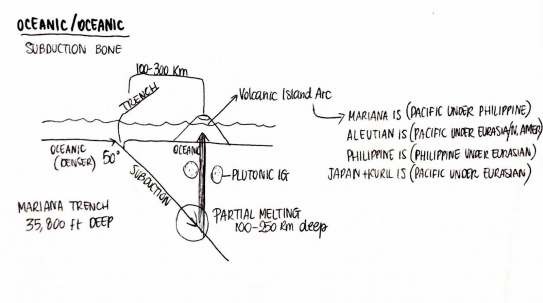 OCEANIC/OCEANIC
SUBDUCTION BONE
100-300 Km
TRENCH
Volcanic Island Arc
MARIANA IS (PACIFIC UNDER PHILIPPINE)
ALEUTIAN IS (PACIFIC UNDER EURASIA/N. AMER)
PHILIPPINE IS (PHILIPPINE UNDER EURASIAN)
JAPAN + KURIL IS (PACIFIC UNDER EURASIAN)
OCEANIC
(DENSER)
50°
OCEANIC
SUBDUCTION
PLUTONIC IG
MARIANA TRENCH
35,800 ft DEEP
PARTIAL MELTING
100-250 Km deep